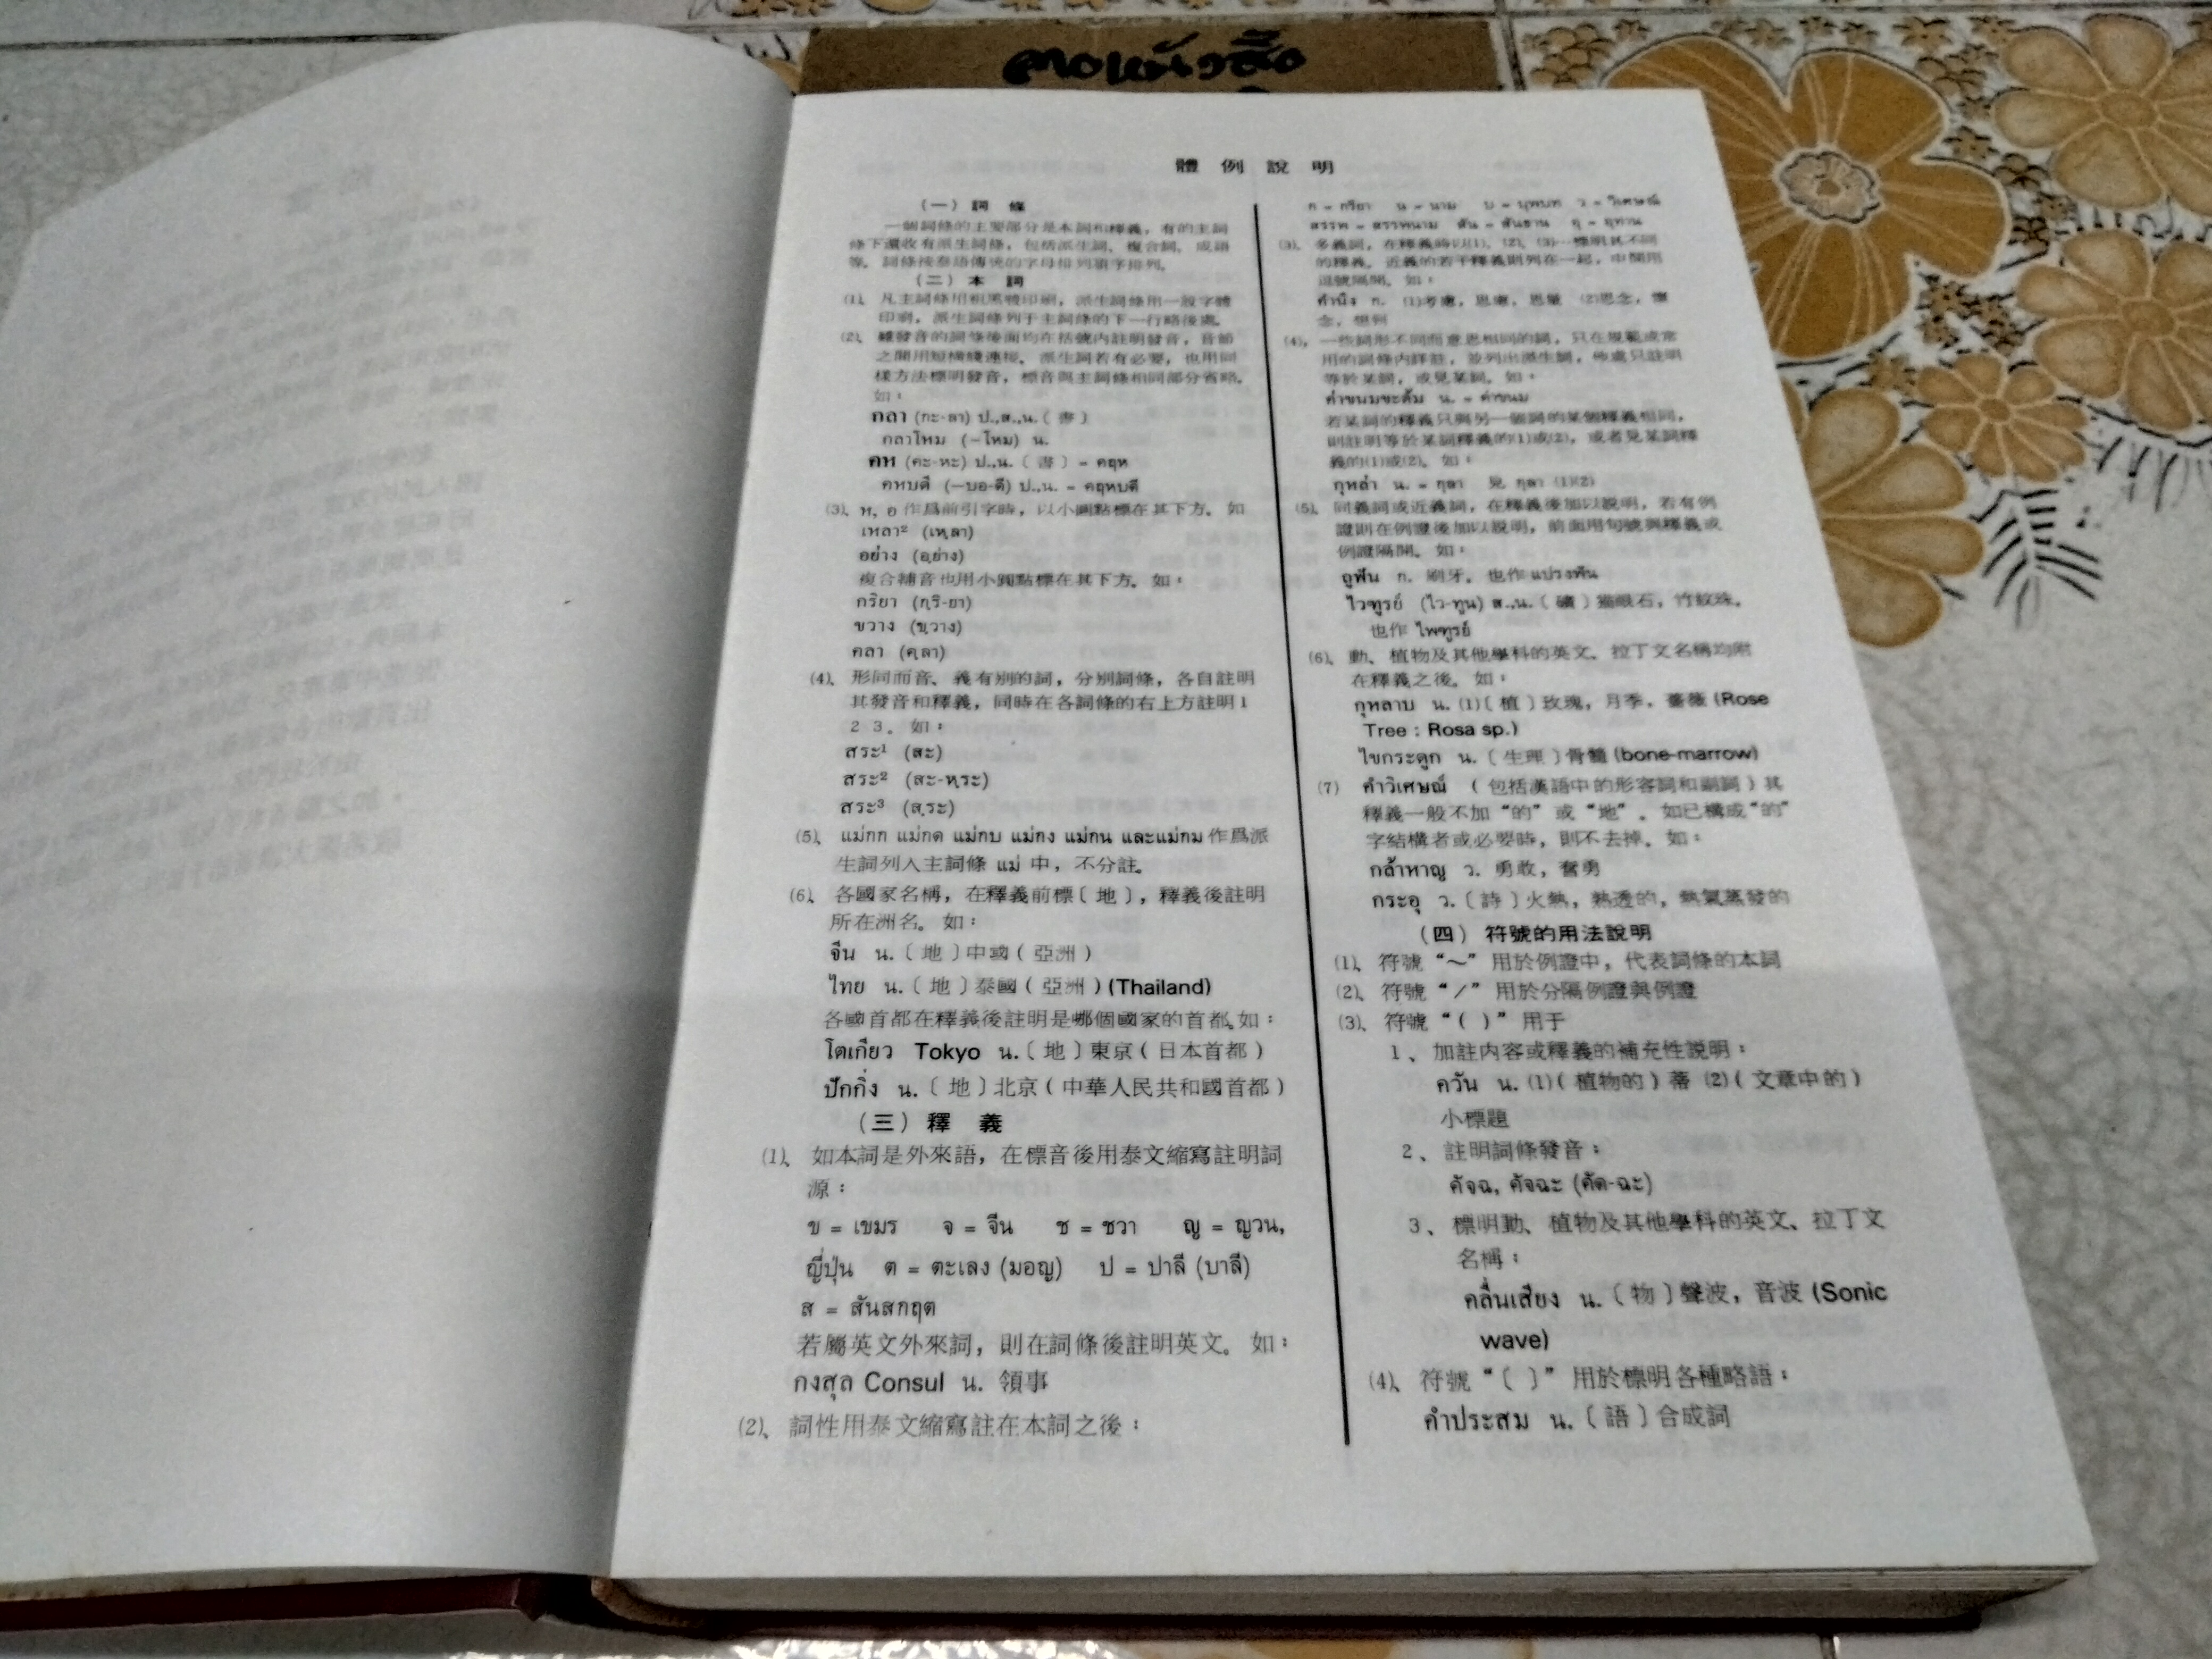 體例說明
（一）詞條
一個詞條的主要部分是本詞和釋義，有的主詞
條下還收有派生詞條，包括派生詞、複合詞、成語
等。詞條按泰語傳統的字母排列順字排列。
（二）本詞
(1)、凡主詞條用粗黑體印刷，派生詞條用一般字體
印刷，派生詞條列于主詞條的下一行略後處。
(2)、難發音的詞條後面均在括號內註明發音，音節
之間用短橫綫連接。派生詞若有必要，也用同
樣方法標明發音，標音與主詞條相同部分省略。
如：
กลา (กะ-ลา) ป.,ส.,น.〔書〕
กลาโหม (–โหม) น.
คห (คะ-หะ) ป.,น.〔書〕= คฤห
คหบดี (–บอ-ดี) ป.,น. = คฤหบดี
(3)、ห, อ 作爲前引字時，以小圓點標在其下方。如
เหลา² (เหฺลา)
อย่าง (อฺย่าง)
複合輔音也用小圓點標在其下方。如：
กริยา (กฺริ-ยา)
ขวาง (ขฺวาง)
คลา (คฺลา)
(4)、形同而音、義有別的詞，分別詞條，各自註明
其發音和釋義，同時在各詞條的右上方註明1
2 3。如：
สระ¹ (สะ)
สระ² (สะ-หฺระ)
สระ³ (สฺระ)
(5)、แม่กก แม่กด แม่กบ แม่กง แม่กน และแม่กม 作爲派
生詞列入主詞條 แม่ 中，不分註。
(6)、各國家名稱，在釋義前標〔地〕，釋義後註明
所在洲名。如：
จีน น.〔地〕中國（亞洲）
ไทย น.〔地〕泰國（亞洲）(Thailand)
各國首都在釋義後註明是哪個國家的首都。如：
โตเกียว Tokyo น.〔地〕東京（日本首都）
ปักกิ่ง น.〔地〕北京（中華人民共和國首都）
（三）釋義
(1)、如本詞是外來語，在標音後用泰文縮寫註明詞
源：
ข = เขมร จ = จีน ช = ชวา ญ = ญวน,
ญี่ปุ่น ต = ตะเลง (มอญ) ป = ปาลี (บาลี)
ส = สันสกฤต
若屬英文外來詞，則在詞條後註明英文。如：
กงสุล Consul น. 領事
(2)、詞性用泰文縮寫註在本詞之後：
ก = กริยา น = นาม บ = บุพบท ว = วิเศษณ์
สรรพ = สรรพนาม สัน = สันธาน อุ = อุทาน
(3)、多義詞，在釋義時以(1)、(2)、(3)…標明其不同
的釋義。近義的若干釋義則列在一起，中間用
逗號隔開。如：
คำนึง ก. (1)考慮，思慮，思量 (2)思念，懷
念，想到
(4)、一些詞形不同而意思相同的詞，只在規範或常
用的詞條內詳註，並列出派生詞，他處只註明
等於某詞，或見某詞。如：
ค่าขนมขะต้ม น. = ค่าขนม
若某詞的釋義只與另一個詞的某個釋義相同，
則註明等於某詞釋義的(1)或(2)，或者見某詞釋
義的(1)或(2)。如：
กุหล่า น. = กุลา 見 กุลา (1)(2)
(5)、同義詞或近義詞，在釋義後加以說明，若有例
證則在例證後加以說明，前面用句號與釋義或
例證隔開。如：
ถูฟัน ก. 刷牙。也作 แปรงฟัน
ไวฑูรย์ (ไว-ทูน) ส.,น.〔礦〕猫眼石，竹紋珠。
也作 ไพฑูรย์
(6)、動、植物及其他學科的英文、拉丁文名稱均附
在釋義之後。如：
กุหลาบ น. (1)〔植〕玫瑰，月季，薔薇 (Rose
Tree : Rosa sp.)
ไขกระดูก น.〔生理〕骨髓 (bone-marrow)
(7) คำวิเศษณ์ （包括漢語中的形容詞和副詞）其
釋義一般不加“的”或“地”。如已構成“的”
字結構者或必要時，則不去掉。如：
กล้าหาญ ว. 勇敢，奮勇
กระอุ ว.〔詩〕火熱，熱透的，熱氣蒸發的
（四）符號的用法說明
(1)、符號“～”用於例證中，代表詞條的本詞
(2)、符號“／”用於分隔例證與例證
(3)、符號“（ ）”用于
1、加註內容或釋義的補充性說明：
ควัน น. (1)（植物的）蒂 (2)（文章中的）
小標題
2、註明詞條發音：
คัจฉ, คัจฉะ (คัด-ฉะ)
3、標明動、植物及其他學科的英文、拉丁文
名稱：
คลื่นเสียง น.〔物〕聲波，音波 (Sonic
wave)
(4)、符號“〔 〕”用於標明各種略語：
คำประสม น.〔語〕合成詞